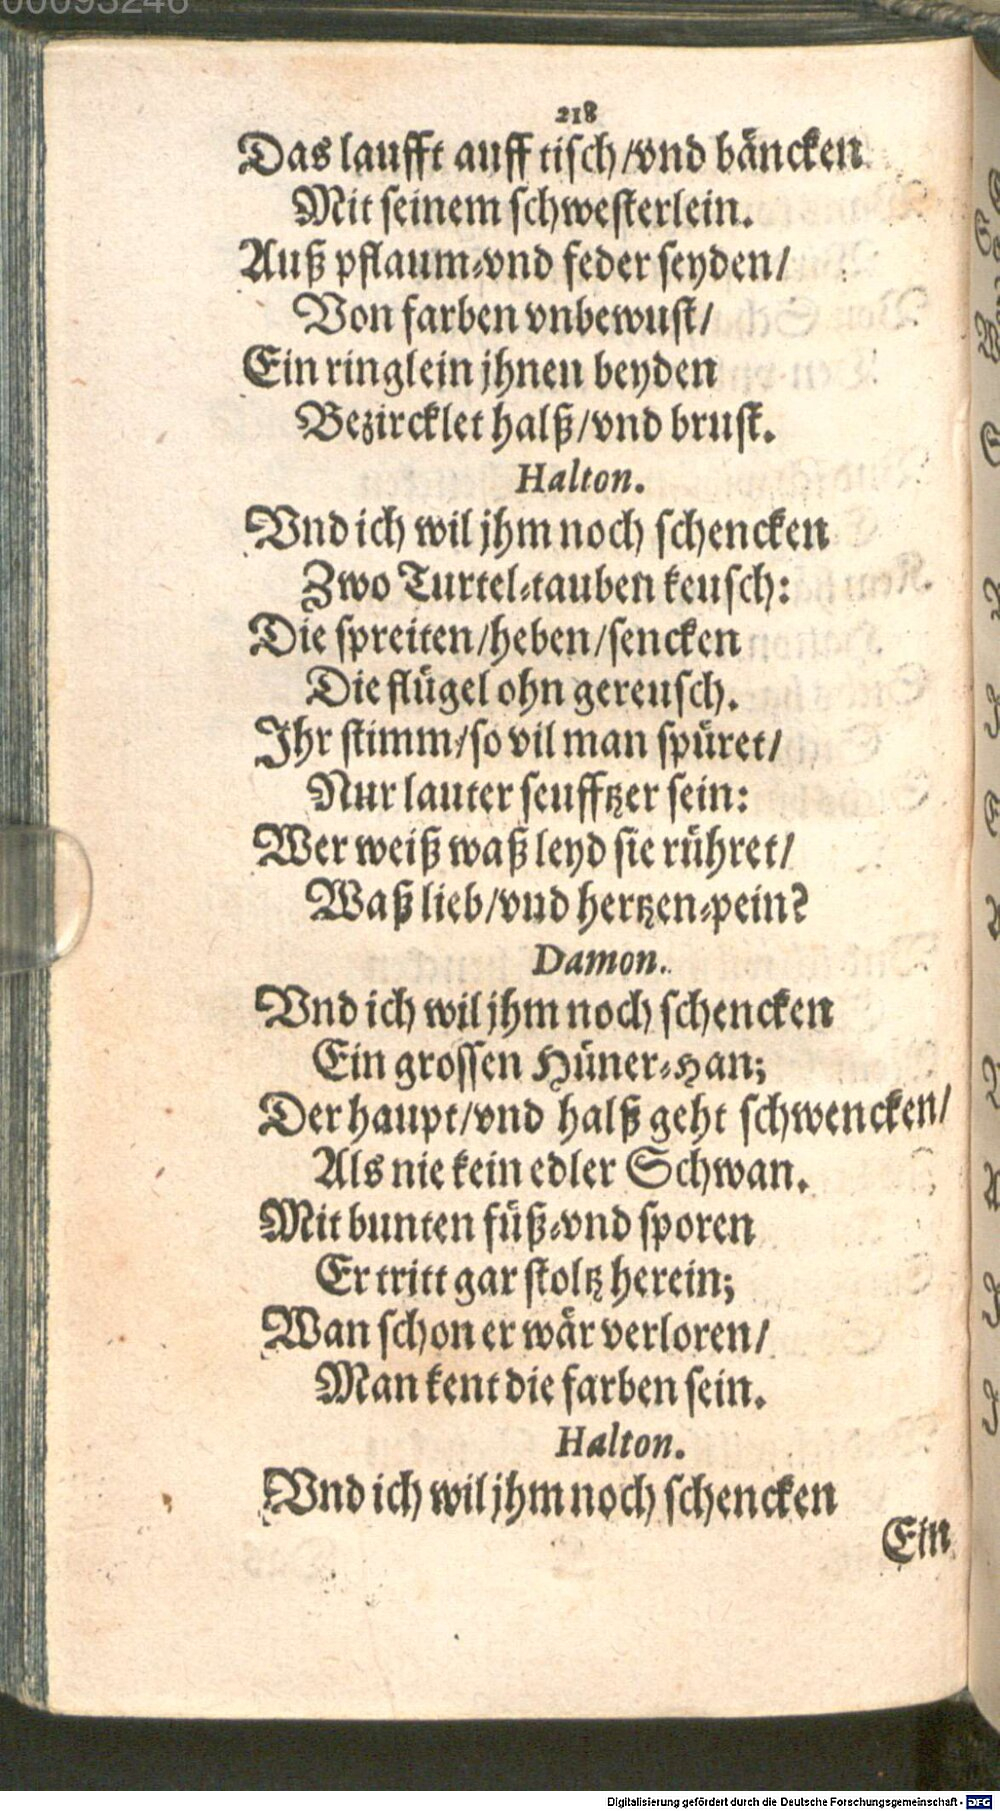 00095246
218
Das laufft auff tisch/vnd bäncken
Mit seinem schwesterlein.
Auß pflaum-vnd feder seyden/
Von farben vnbewust/
Ein ringlein jhnen beyden
Bezircklet halß/vnd brust.
Halton.
Vnd ich wil jhm noch schencken
Zwo Turtel-tauben keusch:
Die spreiten/heben/sencken
Die flügel ohn gereusch.
Ihr stimm/so vil man spüret/
Nur lauter seufftzer sein:
Wer weiß waß leyd sie rühret/
Waß lieb/vnd hertzen-pein?
Damon.
Vnd ich wil jhm noch schencken
Ein grossen Hüner-Han;
Der haupt/vnd halß geht schwencken/
Als nie kein edler Schwan.
Mit bunten füß-vnd sporen
Er tritt gar stoltz herein;
Wan schon er wär verloren/
Man kent die farben sein.
Halton.
Vnd ich wil jhm noch schencken
Ein
Digitalisierung gefördert durch die Deutsche Forschungsgemeinschaft - DFG